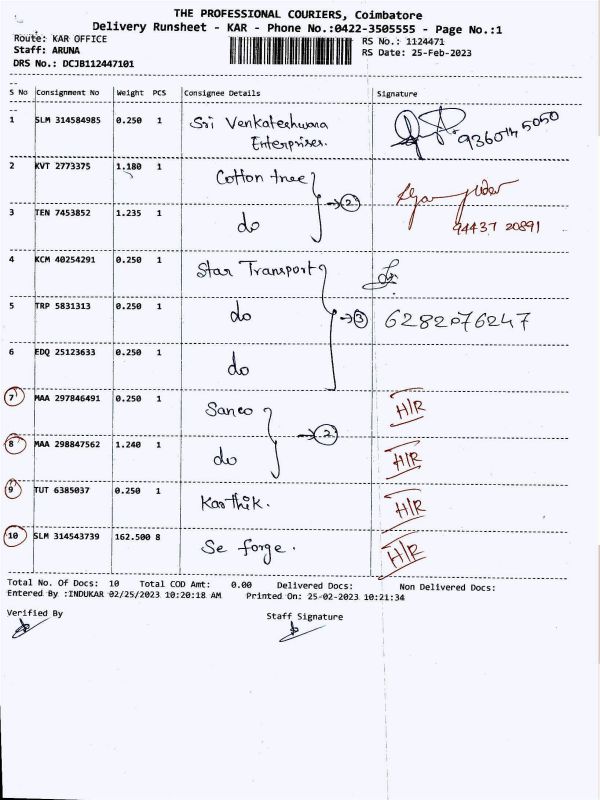 THE PROFESSIONAL COURIERS, Coimbatore
Delivery Runsheet - KAR - Phone No.:0422-3505555 - Page No.:1
Route: KAR OFFICE RS No.: 1124471
Staff: ARUNA RS Date: 25-Feb-2023
DRS No.: DCJB112447101
S No Consignment No Weight PCS Consignee Details Signature
1 SLM 314584985 0.250 1 Sri Venkateshwara
Enterprises.
2 KVT 2773375 1.180 1 Cotton tree → 2
3 TEN 7453852 1.235 1 do 94437 20891
4 KCM 40254291 0.250 1 Star Transport
5 TRP 5831313 0.250 1 do → 3 6282076247
6 EDQ 25123633 0.250 1 do
7 MAA 297846491 0.250 1 Sanco H/R
→ 2
8 MAA 298847562 1.240 1 do H/R
9 TUT 6385037 0.250 1 Karthik. H/R
10 SLM 314543739 162.500 8 Se forge. H/R
Total No. Of Docs: 10 Total COD Amt: 0.00 Delivered Docs: Non Delivered Docs:
Entered By :INDUKAR 02/25/2023 10:20:18 AM Printed On: 25-02-2023 10:21:34
Verified By Staff Signature